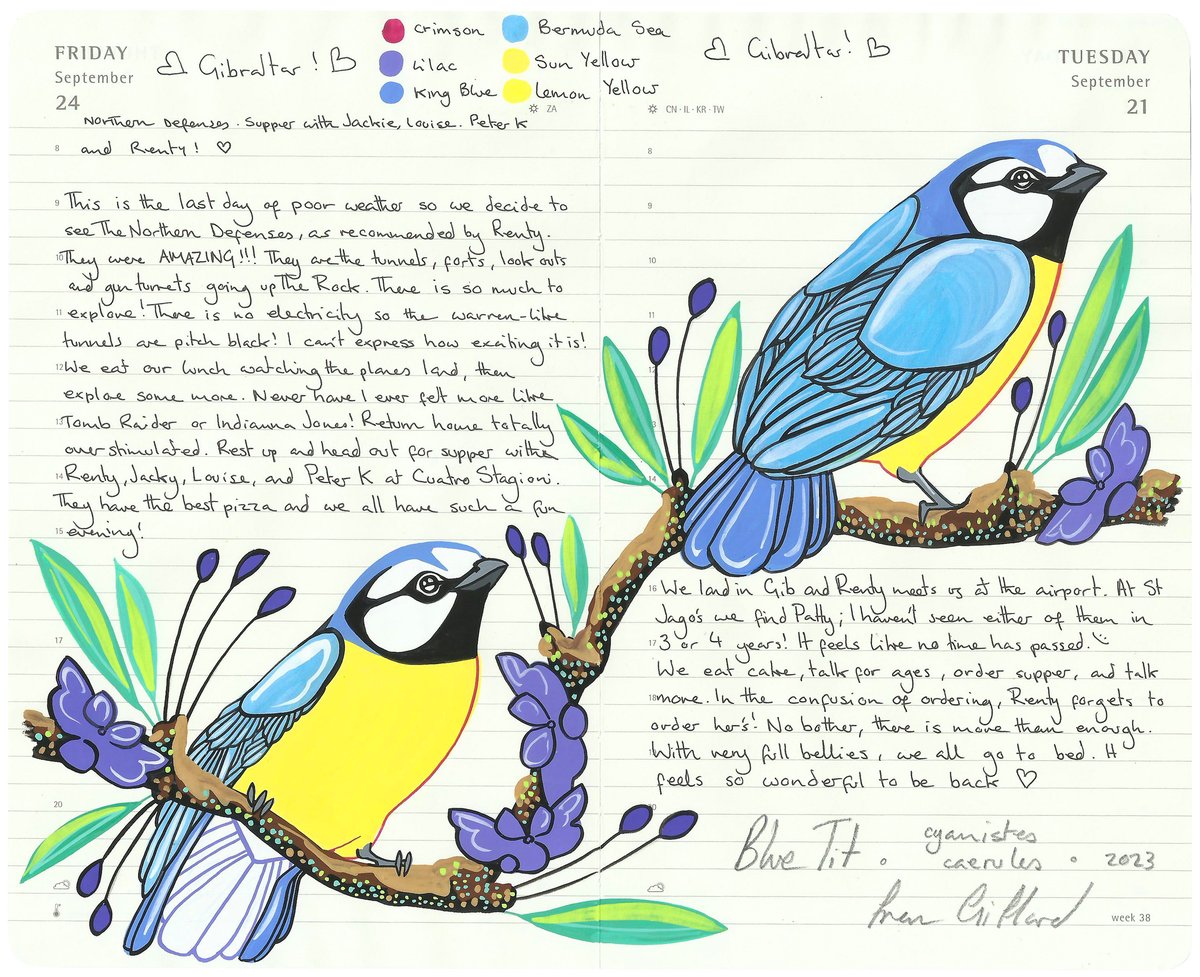 FRIDAY
September
24
♡ Gibraltar! ♡
crimson
lilac
King Blue
Bermuda Sea
Sun Yellow
Lemon Yellow
ZA
Northern Defenses. Supper with Jackie, Louise. Peter K
8 and Renty! ♡
9 This is the last day of poor weather so we decide to
see The Northern Defenses, as recommended by Renty.
10 They were AMAZING!!! They are the tunnels, forts, look outs
and gun turrets going up The Rock. There is so much to
11 explore! There is no electricity so the warren-like
tunnels are pitch black! I can't express how exciting it is!
12 We eat our lunch watching the planes land, then
explore some more. Never have I ever felt more like
13 Tomb Raider or Indianna Jones! Return home totally
overstimulated. Rest up and head out for supper with
14 Renty, Jacky, Louise, and Peter K at Cuatro Stagioni.
They have the best pizza and we all have such a fun
15 evening!
17
20
♡ Gibraltar! ♡
TUESDAY
September
21
CN · IL · KR · TW
8
9
10
11
12
13
14
16 We land in Gib and Renty meets us at the airport. At St
Jago's we find Patty; I haven't seen either of them in
17 3 or 4 years! It feels like no time has passed.
We eat cake, talk for ages, order supper, and talk
18 more. In the confusion of ordering, Renty forgets to
order hers! No bother, there is more than enough.
With very full bellies, we all go to bed. It
feels so wonderful to be back ♡
20
Blue Tit · cyanistes
caerules · 2023
Gillard
week 38